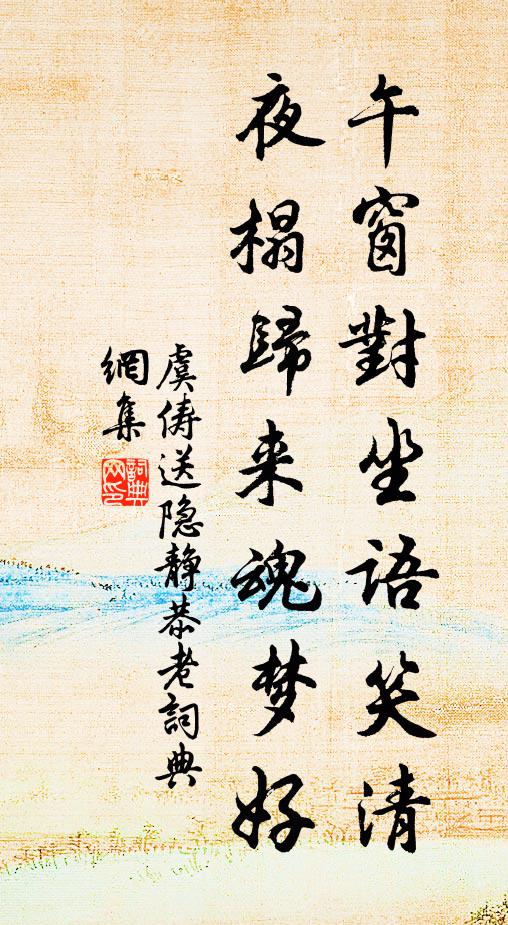 午窗對坐語笑清
夜榻歸来魂梦好
虞俦送隐静恭老詞典
網集
詞典網印